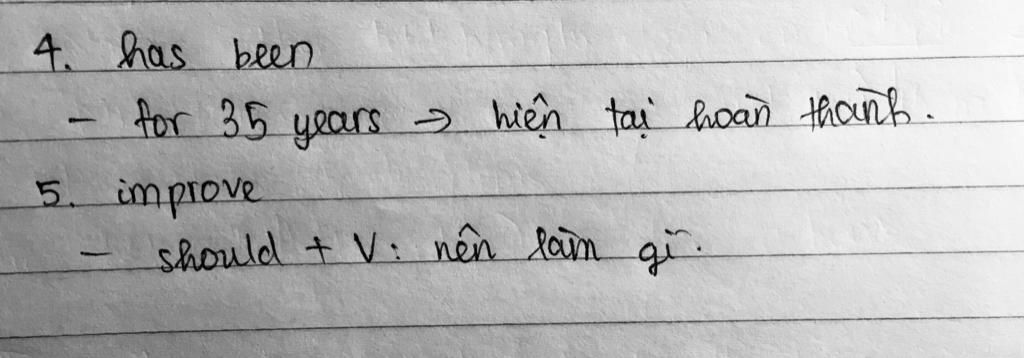 4. has been
- for 35 years → hiện tại hoàn thành.
5. improve
- should + V: nên làm gì.